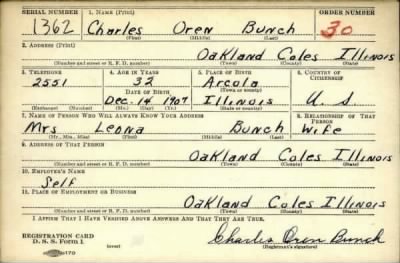 SERIAL NUMBER 1. NAME (Print) ORDER NUMBER
1362 Charles Oren Bunch 30
(First) (Middle) (Last)
2. ADDRESS (Print)
Oakland Coles Illinois
(Number and street or R. F. D. number) (Town) (County) (State)
3. TELEPHONE 4. AGE IN YEARS 5. PLACE OF BIRTH 6. COUNTRY OF CITIZENSHIP
2551 32 Arcola
DATE OF BIRTH (Town or county)
Dec. 14 1907 Illinois U. S.
(Exchange) (Number) (Mo.) (Day) (Yr.) (State or country)
7. NAME OF PERSON WHO WILL ALWAYS KNOW YOUR ADDRESS 8. RELATIONSHIP OF THAT PERSON
Mrs Leona Bunch Wife
(Mr., Mrs., Miss) (First) (Middle) (Last)
9. ADDRESS OF THAT PERSON
Oakland Coles Illinois
(Number and street or R. F. D. number) (Town) (County) (State)
10. EMPLOYER'S NAME
Self
11. PLACE OF EMPLOYMENT OR BUSINESS
Oakland Coles Illinois
(Number and street or R. F. D. number) (Town) (County) (State)
I AFFIRM THAT I HAVE VERIFIED ABOVE ANSWERS AND THAT THEY ARE TRUE.
REGISTRATION CARD
D. S. S. Form 1 (over) Charles Oren Bunch
(Registrant's signature)